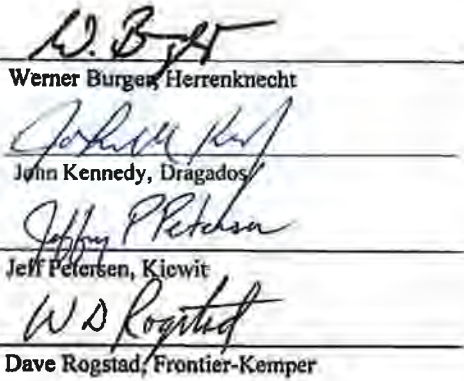 W. Burger
Werner Burger, Herrenknecht
John Kennedy, Dragados
Jeffrey P Petersen
Jeff Petersen, Kiewit
W D Rogstad
Dave Rogstad, Frontier-Kemper